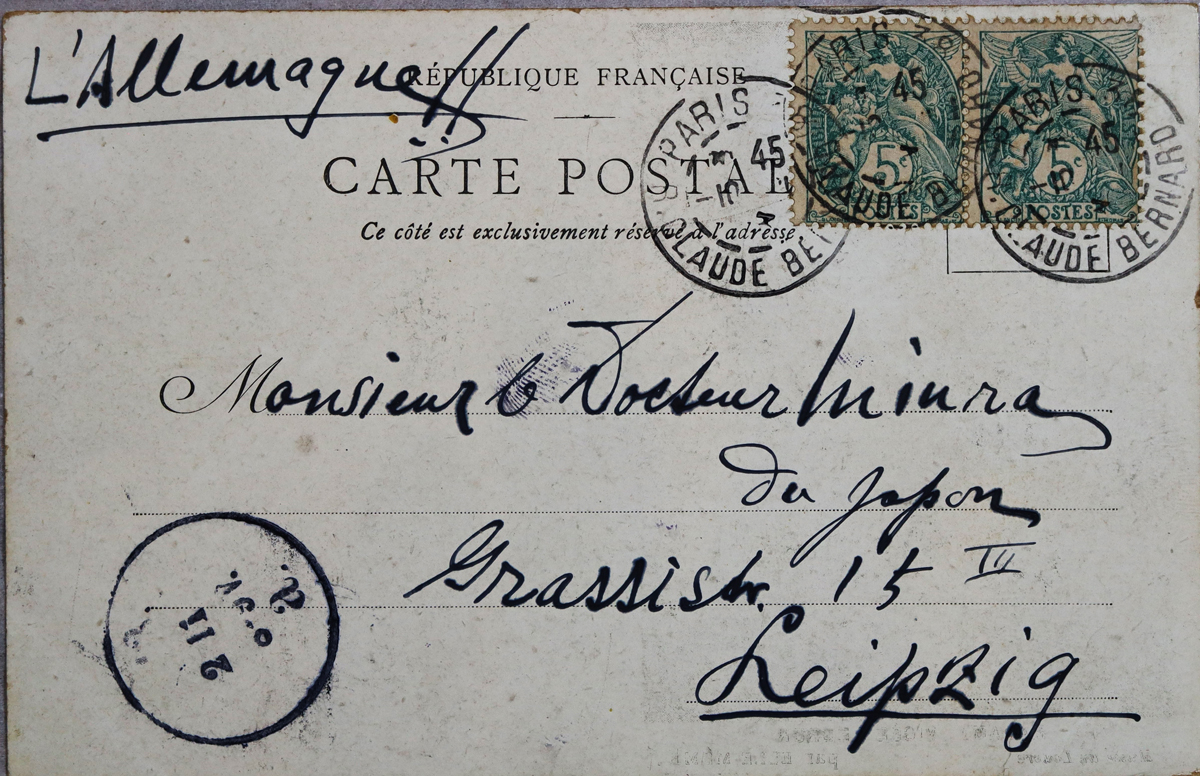 L'Allemagne!!
RÉPUBLIQUE FRANÇAISE
CARTE POSTALE
Ce côté est exclusivement réservé à l'adresse
PARIS
45
CLAUDE BERNARD
PARIS
45
CLAUDE BERNARD
5c
POSTES
PARIS
45
CLAUDE BERNARD
5c
POSTES
Monsieur le Docteur Miura
du Japon
Grassistr. 15 III
Leipzig
2 11